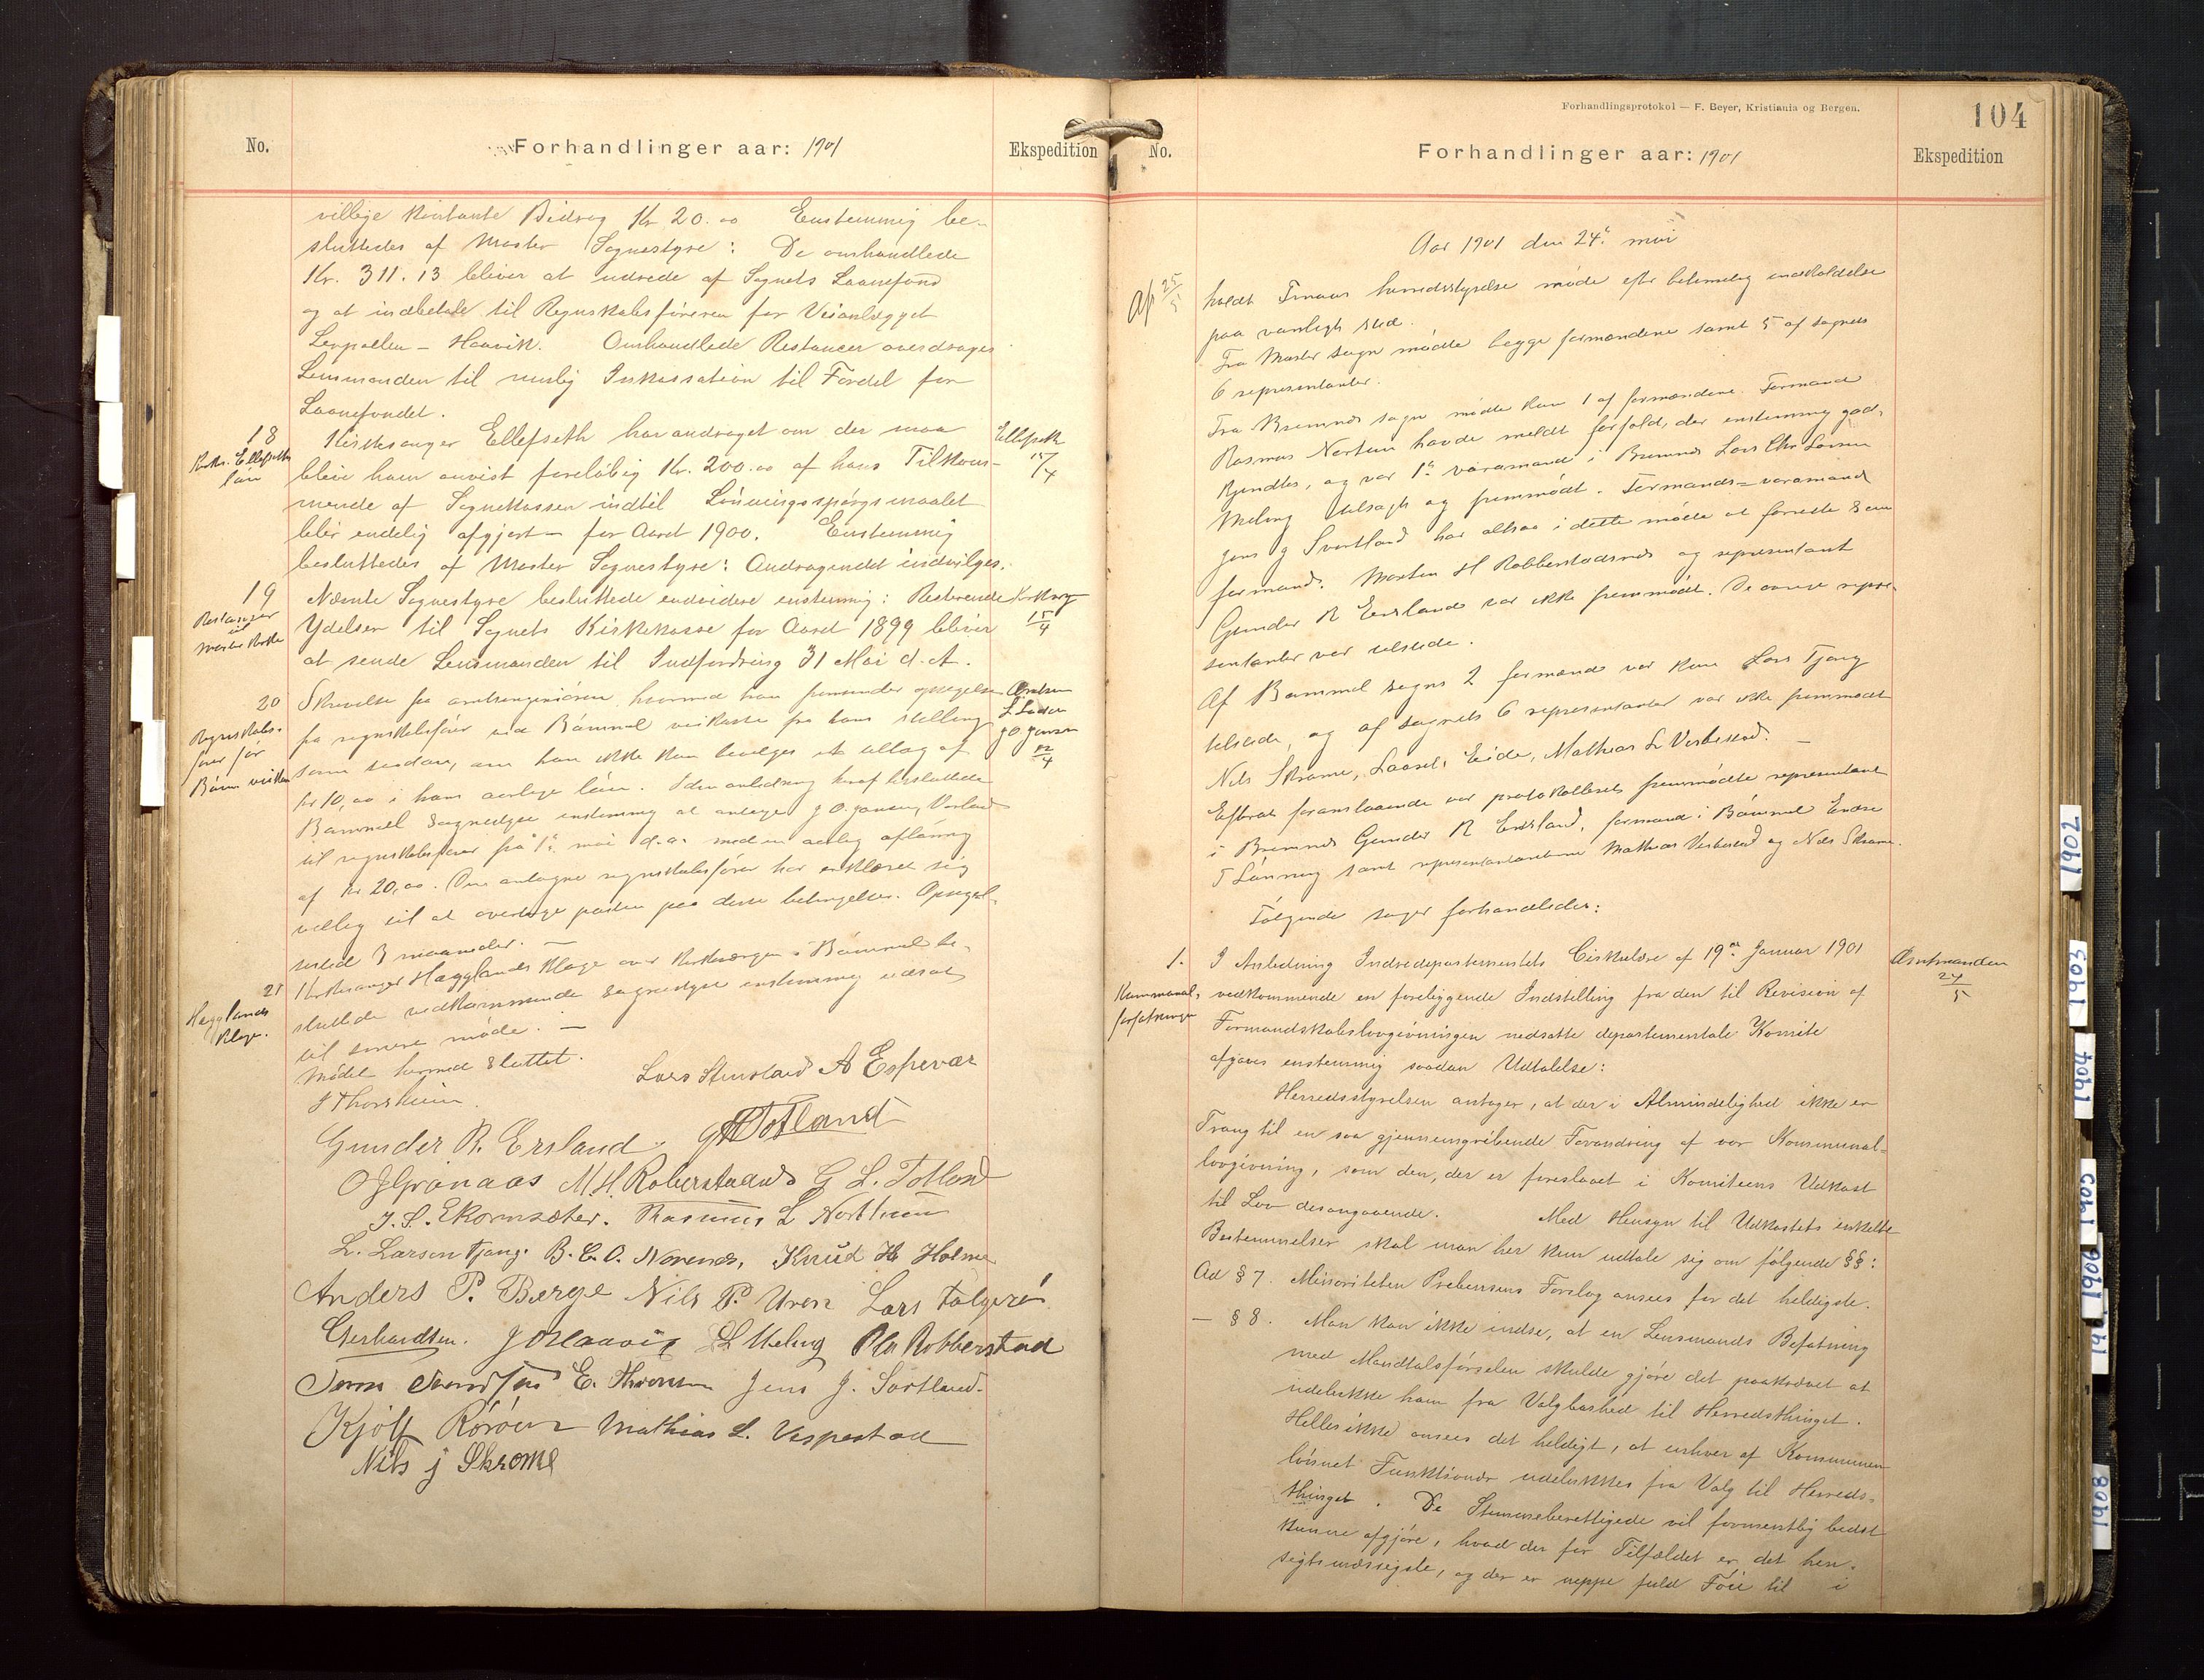 No.
Forhandlinger aar: 1901
Ekspedition
villige kontante Bidrag Kr 20.00 Enstemmig be-
sluttedes af Moster Sognestyre: De omhandlede
Kr. 311.13 bliver at udrede af Sognets Laanefond
og at indbetale til Regnskabsføreren for Veianlægget
Lerpollen - Haavik. Omhandlede Restancer overdrages
Lensmanden til rimlig Inkassation til Fordel for
Laanefondet.
18
Kirkes. Ellefseths
løn
Kirkesanger Ellefseth har andraget om der maa
blive ham anvist foreløbig Kr. 200.00 af hans Tilkom-
mende af Sognekassen indtil Lønningsspørgsmaalet
blir endelig afgjort - for Aaret 1900. Enstemmig
besluttedes af Moster Sognestyre: Andragendet indvilges.
Ellefseth
15/4
19
Restancer
til
Moster Kirke
Nævnte Sognestyre besluttede endvidere enstemmig: Resterende
Ydelser til Sognets Kirkekasse for Aaret 1899 bliver
at sende Lensmanden til Indfordring 31 Mai d. A.
Kirkevg
15/4
20
Regnskabs-
fører for
Bøm. veikasse
Skrivelse fra amtsingeniøren hvormed han fremsender opsigelse
fra regnskabsfører ved Bømmel veikasse fra hans stilling
som saadan, om han ikke kan bevilges et tillæg af
kr 10,00 i hans aarlige løn. I den anledning heraf besluttede
Bømmel sognestyre enstemmig at antage J O Jansen, Vorland
til regnskabsfører fra 1ste mai d.a. mod en aarlig aflønning
af kr 20,00. Den antagne regnskabsfører har erklæret sig
villig til at overtage posten paa disse betingelser. Opsigel-
sestid 3 maaneder. —
21
Hægglands
klage.
Kirkesanger Hægglands klage over kirkeværgen i Bømmel be-
sluttede vedkommende sognestyre enstemmig udsat
til senere møde. —
Mødet hermed sluttet.
J Thorsheim
Lars Stensland A Espevær
Gunder R. Ersland. G H Totland
O J Grønaas M H. Roberstadnæs G L. Totland
J. S. Ekornsæter. Rasmus L Nortun
L. Larsen Tjong. B. E. O. Norenes, Knud H Holme
Anders P. Børge Nils P. Uren Lars Folgerø
Gerhardsen. J O Haavig L Meling Ola Robberstad
E. Thronsen Jens J. Sortland.
Kjølf Rørøen Mathias L. Vespestad
Nils j Skrome
Forhandlingsprotokol — F. Beyer, Kristiania og Bergen.
104
No.
Forhandlinger aar: 1901
Ekspedition
Aar 1901 den 24de mai
Af 25/5
holdt Finaas herredsstyrelse møde efter betimelig indkaldelse
paa vanligt sted.
Fra Moster sogn mødte begge formændene samt 5 af sognets
6 representanter.
Fra Bremnes sogn mødte kun 1 af formændene. Formand
Rasmus Nortun havde meldt forfald, der enstemmig god-
kjendtes, og var 1ste varamand i Bremnes Lars Chr Larsen
Meling tilsagt og fremmødt. Formands-varamand
Jens J Svortland har altsaa i dette møde at forrette som
formand. Morten H Robberstadnes og representant
Gunder R Ersland var ikke fremmødt. De øvrige repre-
sentanter var tilstede.
Af Bømmel sogns 2 formænd var kun Lars Tjong
tilstede, og af sognets 6 representanter var ikke fremmødt
Nils Skrame, Laurits Eide, Mathias L Vesbestad. —
Efterat foranstaaende var protokolleret fremmødte representant
i Bremnes Gunder R Ersland, formand i Bømmel Endre
T Lønning samt representanterne Mathias Vesbestad og Nils Skrame.
Følgende sager forhandledes:
1.
Kommunal-
forfatningen
I Anledning Indredepartementets Cirkulære af 19de Januar 1901
vedkommende en foreliggende Indstilling fra den til Revision af
Formandskabslovgivningen nedsatte departementale Komite
afgaves enstemmig saadan Udtalelse:
Amtmanden
24/5
Herredsstyrelsen antager, at der i Almindelighed ikke er
Trang til en saa gjennemgribende Forandring af vor Kommunal-
lovgivning, som den, der er foreslaaet i Komiteens Udkast
til Lov desangaaende. Med Hensyn til Udkastets enkelte
Bestemmelser skal man her kun udtale sig om følgende §§:
Ad § 7. Minoriteten Prebensens Forslag ansees for det heldigste.
— § 8. Man kan ikke indse, at en Lensmands Befatning
med Mandtalsførselen skulde gjøre det paakrævet at
udelukke ham fra Valgbarhed til Herredsthinget.
Heller ikke ansees det heldigt, at enhver af Kommunen
lønnet Funktionær udelukkes fra Valg til Herreds-
thinget. De Stemmeberettigede vil formentlig bedst
kunne afgjøre, hvad der for Tilfældet er det hen-
sigtsmæssigste, og der er neppe fuld Føie til i
1902
1903
1904
1905
1906
1908